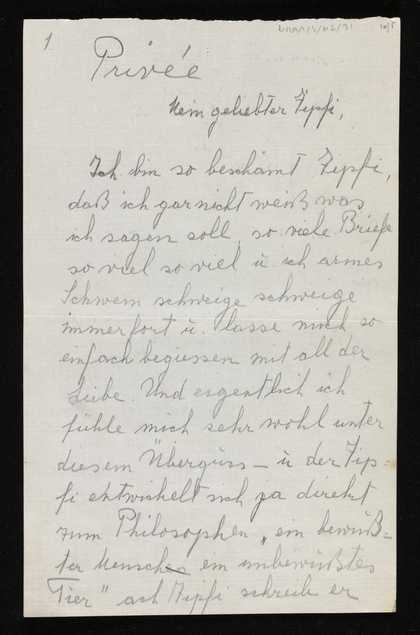 1
Privée
Mein geliebter Zipfi,
Ich bin so beschämt Zipfi,
daß ich gar nicht weiß was
ich sagen soll, so viele Briefe
so viel so viel u. ich armes
Schwein schweige schweige
immerfort u. lasse mich so
einfach begiessen mit all der
Liebe. Und eigentlich ich
fühle mich sehr wohl unter
diesem Überguss – u der Zip=
fi entwickelt sich ja direkt
zum Philosophen „ein bewuß=
ter Mensch ein unbewußtes
Tier" ach Zipfi schreib er